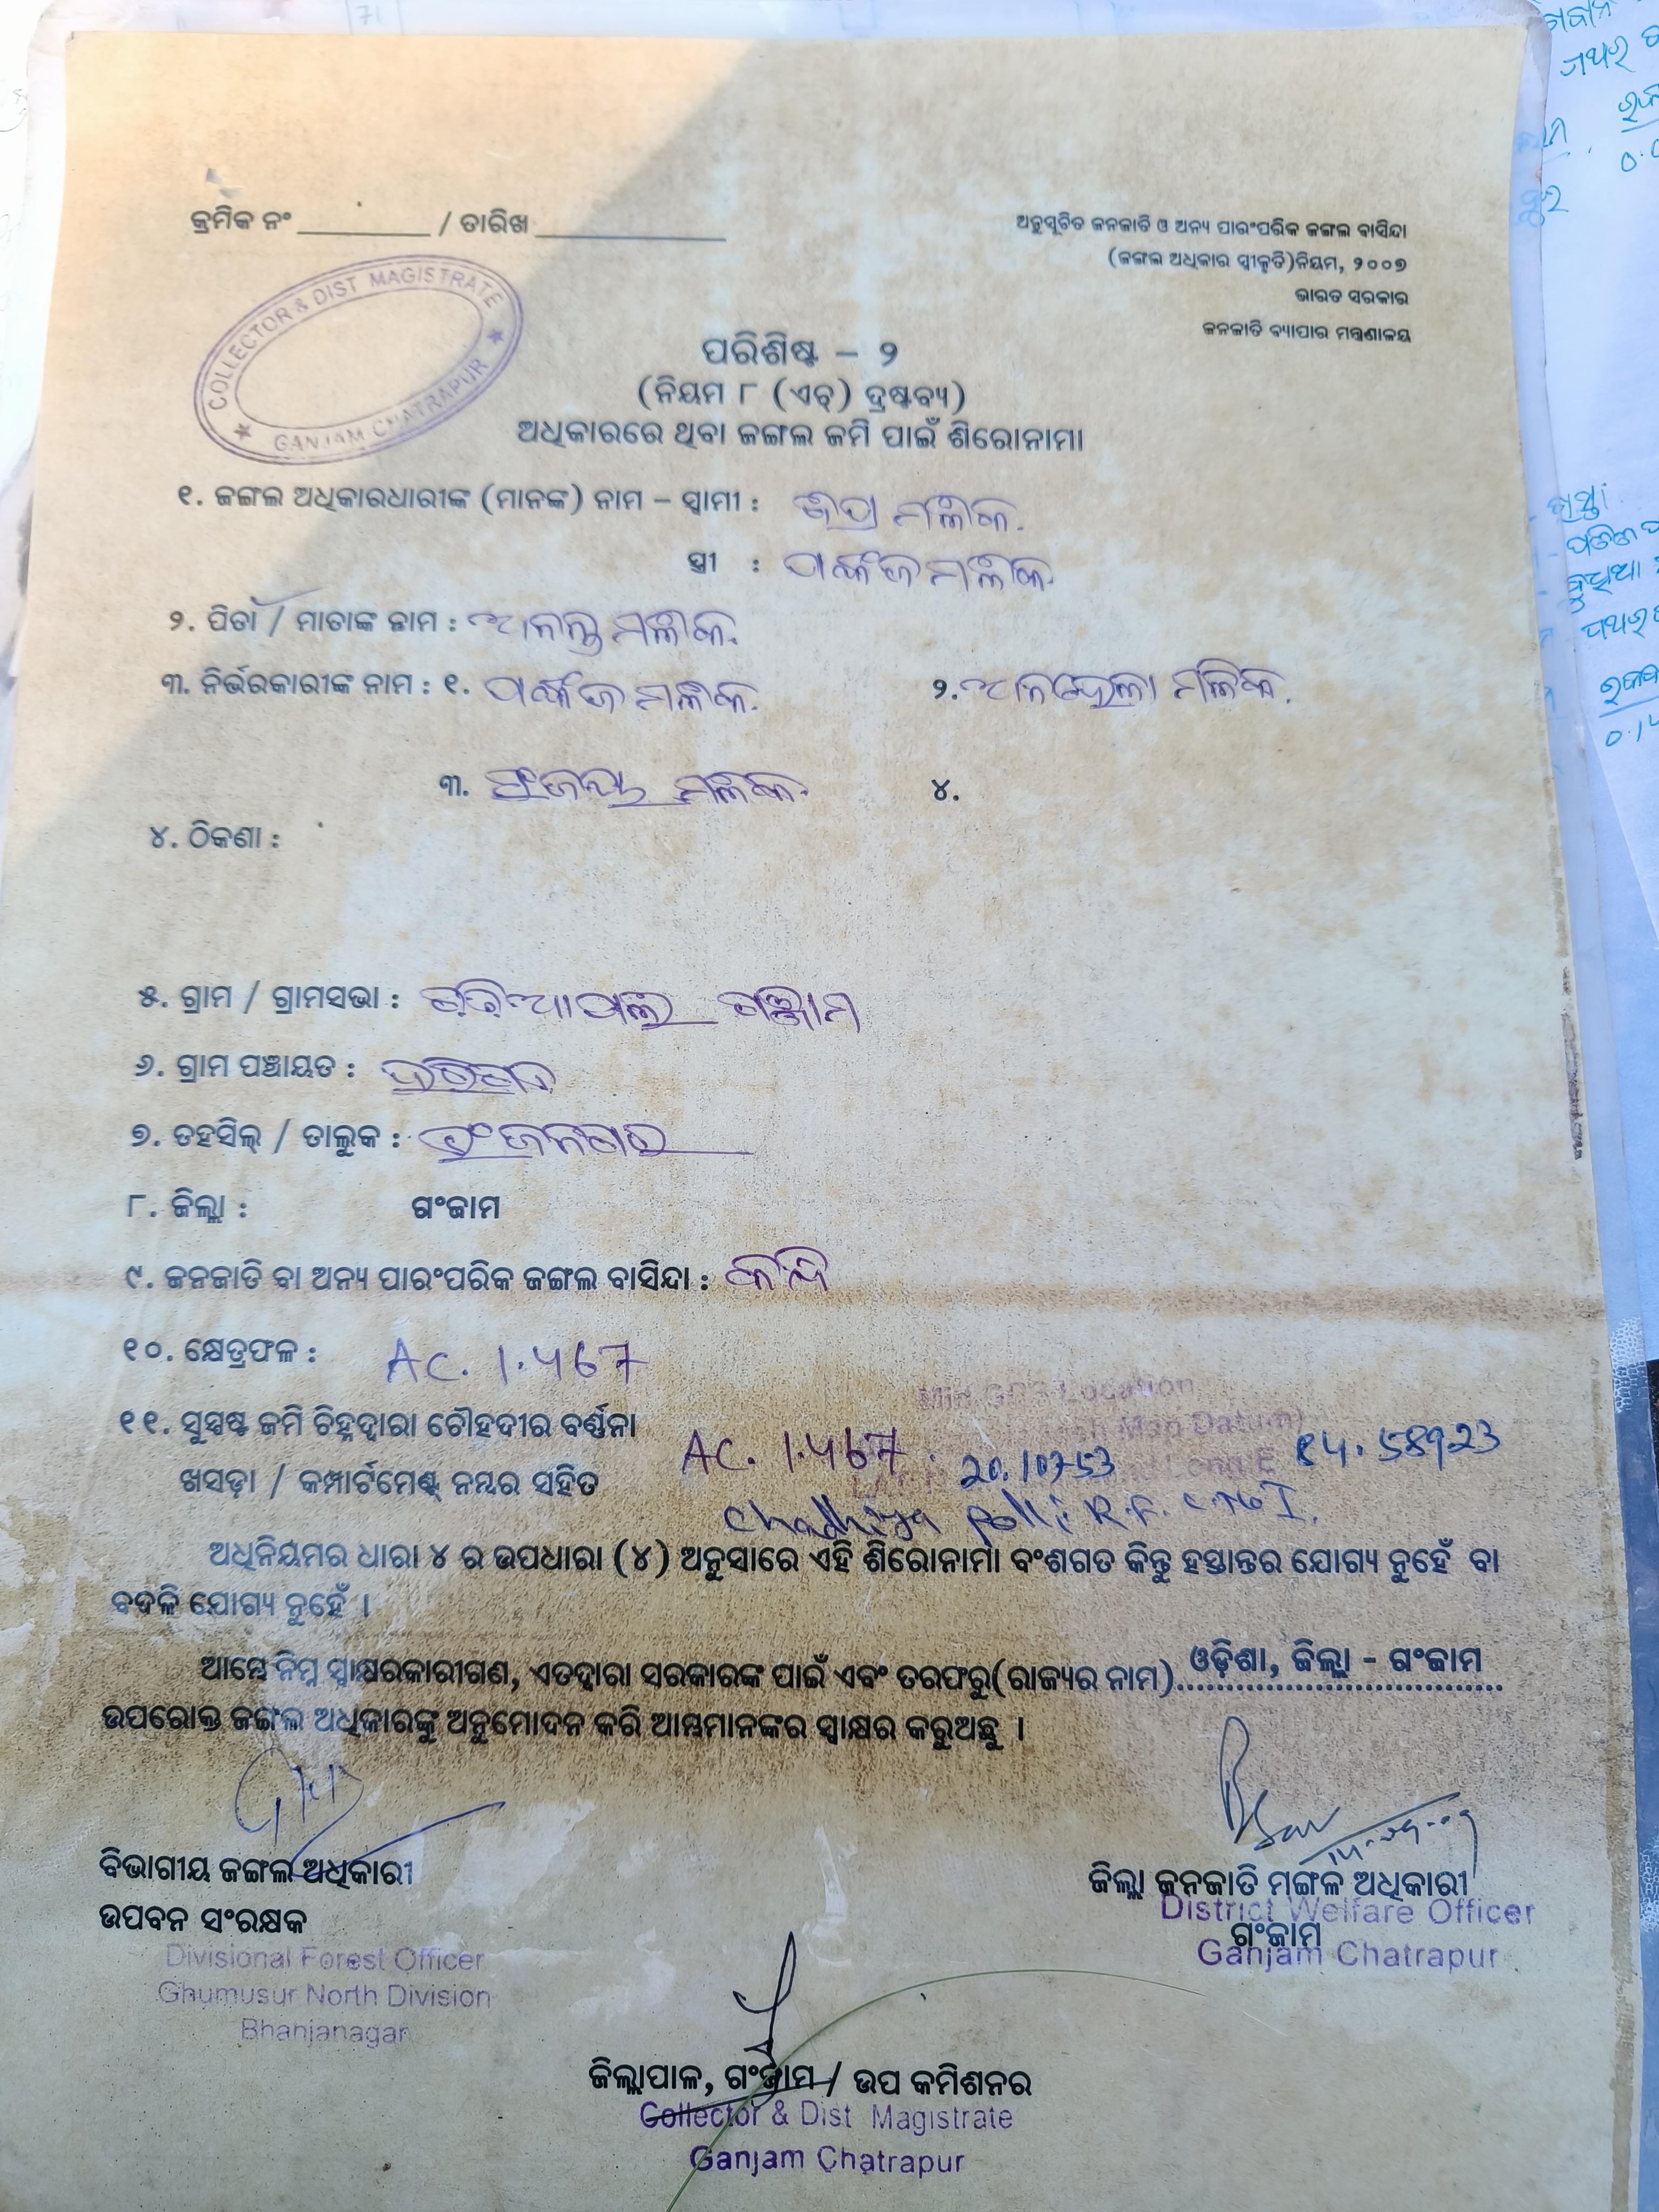 କ୍ରମିକ ନଂ ________ / ତାରିଖ ____________
ଅନୁସୂଚିତ ଜନଜାତି ଓ ଅନ୍ୟ ପାରଂପରିକ ଜଙ୍ଗଲ ବାସିନ୍ଦା
(ଜଙ୍ଗଲ ଅଧିକାର ସ୍ୱୀକୃତି)ନିୟମ, ୨୦୦୭
ଭାରତ ସରକାର
ଜନଜାତି ବ୍ୟାପାର ମନ୍ତ୍ରଣାଳୟ
COLLECTOR & DIST MAGISTRATE
GANJAM CHATRAPUR
ପରିଶିଷ୍ଟ – ୨
(ନିୟମ ୮ (ଏଚ୍) ଦ୍ରଷ୍ଟବ୍ୟ)
ଅଧିକାରରେ ଥିବା ଜଙ୍ଗଲ ଜମି ପାଇଁ ଶିରୋନାମା
୧. ଜଙ୍ଗଲ ଅଧିକାରଧାରୀଙ୍କ (ମାନଙ୍କ) ନାମ – ସ୍ୱାମୀ : ମଲ୍ଲିକ.
ସ୍ତ୍ରୀ : ପଙ୍କଜ ମଲ୍ଲିକ
୨. ପିତା / ମାତାଙ୍କ ନାମ : ଆନନ୍ତ ମଲ୍ଲିକ.
୩. ନିର୍ଭରକାରୀଙ୍କ ନାମ : ୧. ପଙ୍କଜ ମଲ୍ଲିକ. ୨. ମଲ୍ଲିକ.
୩. ମଲ୍ଲିକ ୪.
୪. ଠିକଣା :
୫. ଗ୍ରାମ / ଗ୍ରାମସଭା : ଗଞ୍ଜାମ
୬. ଗ୍ରାମ ପଞ୍ଚାୟତ :
୭. ତହସିଲ୍ / ତାଲୁକ : ଭଂଜନଗର
୮. ଜିଲ୍ଲା : ଗଂଜାମ
୯. ଜନଜାତି ବା ଅନ୍ୟ ପାରଂପରିକ ଜଙ୍ଗଲ ବାସିନ୍ଦା : କନ୍ଧ
୧୦. କ୍ଷେତ୍ରଫଳ : AC. 1.467
Mid GPS Location
Map Datum)
୧୧. ସୁସ୍ପଷ୍ଟ ଜମି ଚିହ୍ନଦ୍ୱାରା ଚୌହଦୀର ବର୍ଣ୍ଣନା AC. 1.467. 20.10753 84.58923
ଖସଡ଼ା / କମ୍ପାର୍ଟମେଣ୍ଟ ନମ୍ବର ସହିତ Chadhiya palli R.F.
ଅଧିନିୟମର ଧାରା ୪ ର ଉପଧାରା (୪) ଅନୁସାରେ ଏହି ଶିରୋନାମା ବଂଶଗତ କିନ୍ତୁ ହସ୍ତାନ୍ତର ଯୋଗ୍ୟ ନୁହେଁ ବା
ବଦଳି ଯୋଗ୍ୟ ନୁହେଁ ।
ଆମ୍ଭେ ନିମ୍ନ ସ୍ୱାକ୍ଷରକାରୀଗଣ, ଏତଦ୍ଦ୍ୱାରା ସରକାରଙ୍କ ପାଇଁ ଏବଂ ତରଫରୁ(ରାଜ୍ୟର ନାମ) ଓଡ଼ିଶା, ଜିଲ୍ଲା - ଗଂଜାମ
ଉପରୋକ୍ତ ଜଙ୍ଗଲ ଅଧିକାରଙ୍କୁ ଅନୁମୋଦନ କରି ଆମ୍ଭମାନଙ୍କର ସ୍ୱାକ୍ଷର କରୁଅଛୁ ।
ବିଭାଗୀୟ ଜଙ୍ଗଲ ଅଧିକାରୀ
ଉପବନ ସଂରକ୍ଷକ
Divisional Forest Officer
Ghumusur North Division
Bhanjanagar
ଜିଲ୍ଲା ଜନଜାତି ମଙ୍ଗଳ ଅଧିକାରୀ
District Welfare Officer
ଗଂଜାମ
Ganjam Chatrapur
ଜିଲ୍ଲାପାଳ, ଗଂଜାମ / ଉପ କମିଶନର
Collector & Dist Magistrate
Ganjam Chatrapur